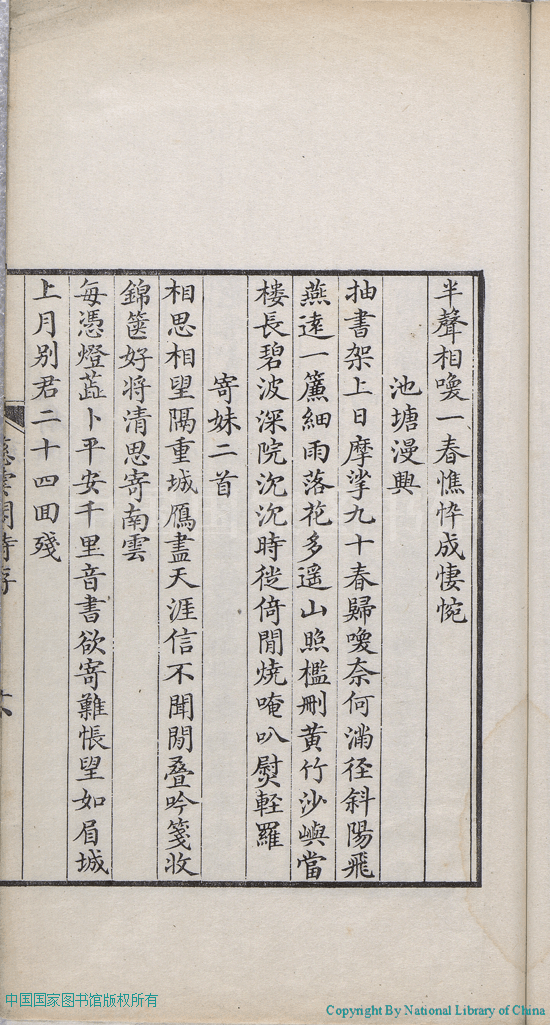 半聲相喚一春憔悴成悽惋
池塘漫興
抽書架上日摩挲九十春歸喚奈何滿徑斜陽飛
燕遠一簾細雨落花多遥山照檻刪黄竹沙嶼當
樓長碧波深院沉沉時徙倚閒燒唵叭熨輕羅
寄妹二首
相思相望隔重城鴈盡天涯信不聞閒疊吟箋收
錦篋好將清思寄南雲
每憑燈蕋卜平安千里音書欲寄難悵望如眉城
上月别君二十四回殘
慈雲閣詩存
六
中国国家图书馆版权所有
Copyright By National Library of China